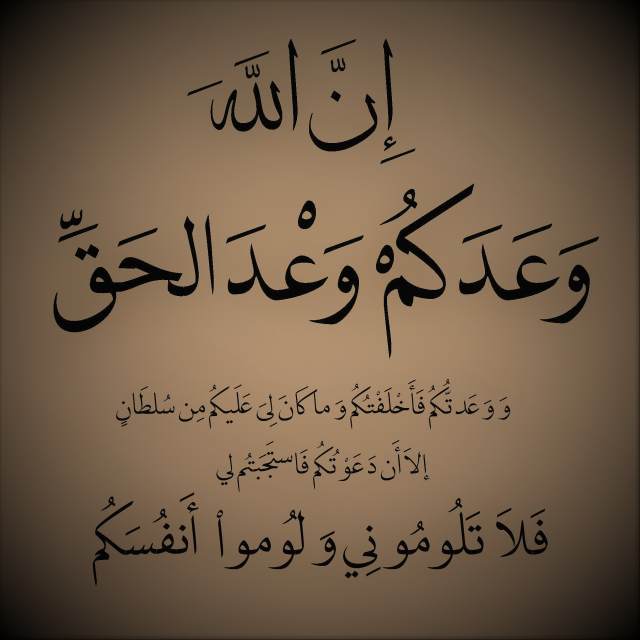 إِنَّ اللَّهَ
وَعَدَكُمْ وَعْدَ الحَقِّ
وَوَعَدتُّكُم فَأَخْلَفْتُكُم وَما كَانَ لِىَ عَلَيكُم مِن سُلطَانٍ
إلاَ أَن دَعَوْتُكُم فَاستَجَبتُم لي
فَلاَ تَلُومُونِي وَلُوموا۟ أَنفُسَكُم